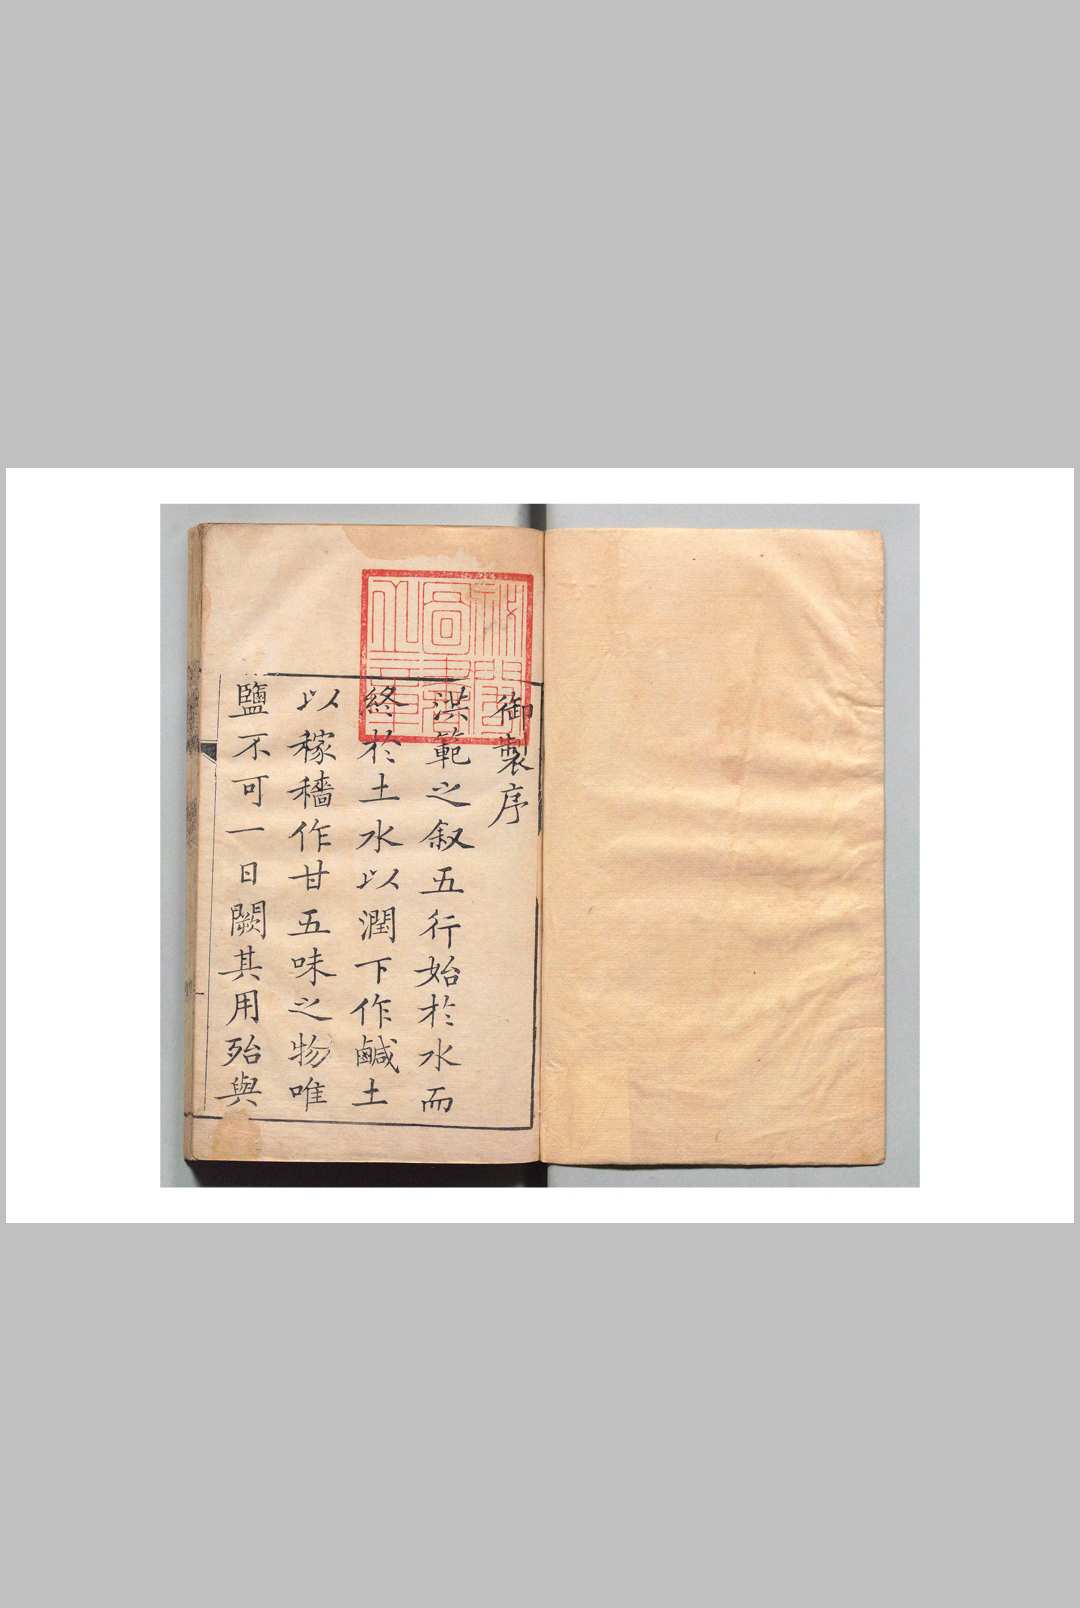 御製序
洪範之叙五行始於水而
終於土水以潤下作鹹土
以稼穡作甘五味之物唯
鹽不可一日闕其用殆與